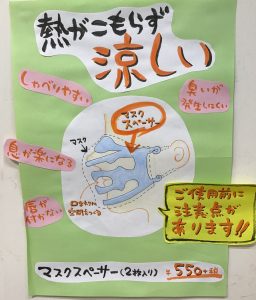 熱がこもらず
涼しい
しゃべりやすい
臭いが
発生しにくい
マスク
スペーサー
マスク
息が楽になる
唇が
付かない
口まわりに
空間をつくる
ご使用前に
注意点が
あります!!
マスクスペーサー(2枚入り) ¥550+税